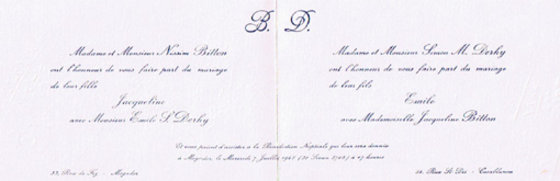 B. D.
Madame et Monsieur Nissim Bitton
ont l'honneur de vous faire part du mariage
de leur fille
Jacqueline
avec Monsieur Emile S. Derhy
Madame et Monsieur Simon M. Derhy
ont l'honneur de vous faire part du mariage
de leur fils
Emile
avec Mademoiselle Jacqueline Bitton
Et vous prient d'assister à la Bénédiction Nuptiale qui leur sera donnée
à Mogador, le Mercredi 7 Juillet à 17 heures
Rue de Fez - Mogador
Rue St Dié - Casablanca